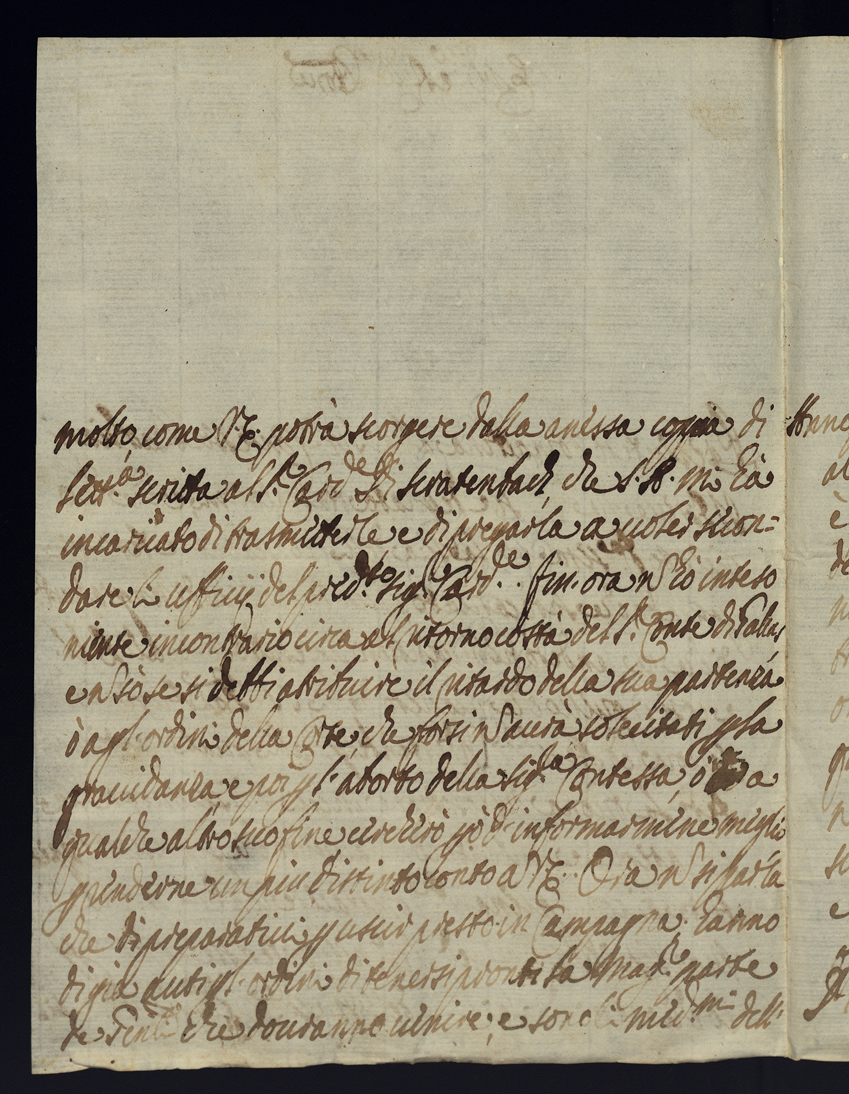 molto, come V.E. potrà scorgere dalla anessa coppia di
lett.ª scritta al S.r Card.le di Scratenbach, che S.A. mi hà
incaricato di trasmitterle e di pregarla a voler sicon=
dare li ufficij del pred.to sig.r Card.le. fin ora n hò inteso
niente in contrario circa al ritorno costà del S.r Conte di Gallas,
e n sò se si debbi attribuire il ritardo della sua partenza
ò agl'ordini della Corte, che forsi n' aurà solecitati p la
gravidanza, e poi p l'aborto della Sig.ra Contessa, ò a
qualche altro suo fine cercherò però d'informarmene meglio
p renderne un più distinto conto a V.E. Ora n si parla
che di preparativi p uscir presto in Campagna. hanno
di già auti gl'ordini di tenersi pronti la mag.re parte
de Gen.li che douranno venire; e sono li med.mi dell'